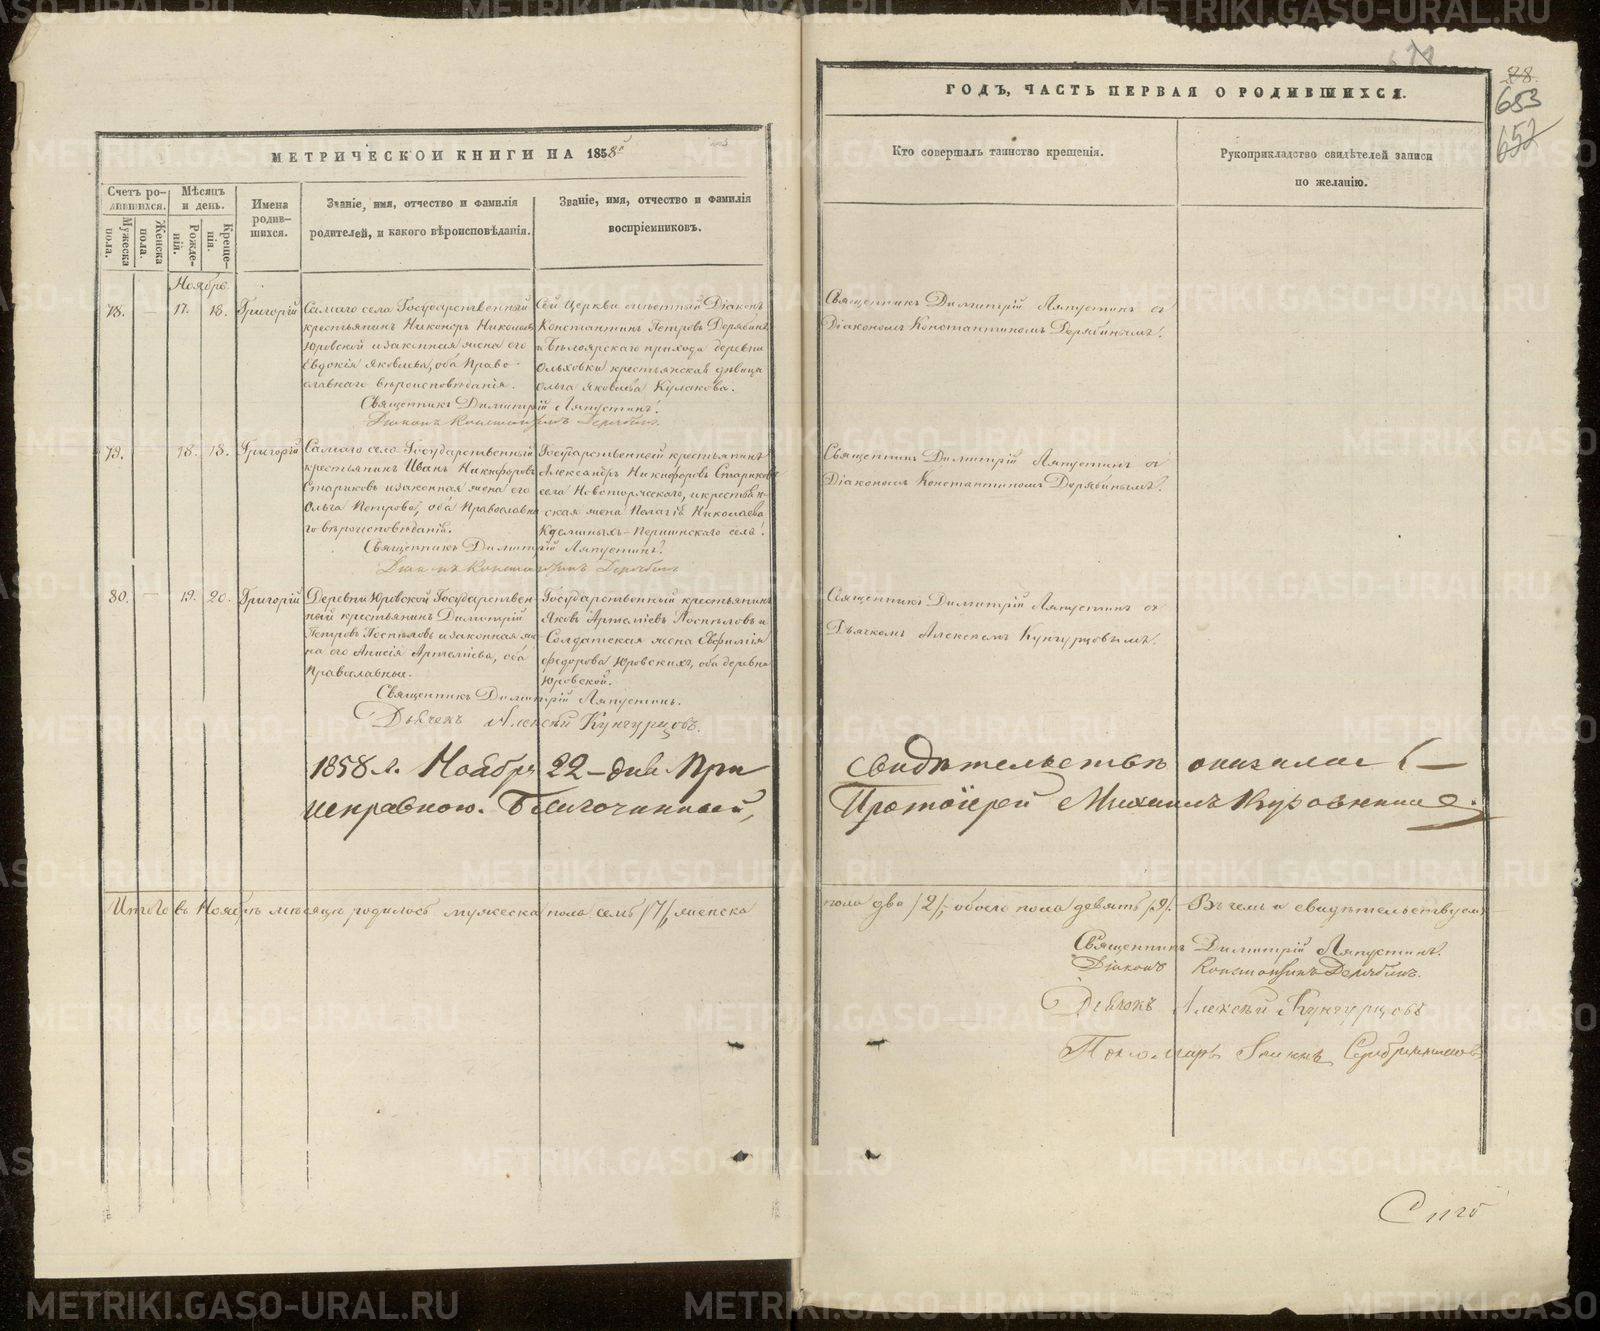 МЕТРИЧЕСКОЙ КНИГИ НА 1858й
Счетъ ро-
дившихся.
Мужеска
пола.
Женска
пола.
Мѣсяцъ
и день.
Рожде-
нія.
Креще-
нія.
Имена
родив-
шихся.
Званіе, имя, отчество и фамилія
родителей, и какого вѣроисповѣданія.
Званіе, имя, отчество и фамилія
воспріемниковъ.
Ноябрь
78. — 17. 18. Григорій
Самаго села Государственный
крестьянинъ Никаноръ Николаевъ
Юровской и законная жена его
Евдокія Яковлева, оба Право-
славнаго вѣроисповѣданія.
Сей Церкви Діаконъ
Константинъ Петровъ Дерябинъ
и Бѣлоярскаго прихода деревни
Ольховки крестьянская дѣвица
Ольга Яковлева Кулакова.
Священникъ Димитрій Ляпустинъ.
Діаконъ Константинъ Дерябинъ.
79. — 18. 18. Григорій
Самаго села Государственный
крестьянинъ Иванъ Никифоровъ
Стариковъ и законная жена его
Ольга Петрова, оба Православна
го вѣроисповѣданія.
Государственный крестьянинъ
Александръ Никифоровъ Стариковъ
села Новоторжскаго, и крестьян-
ская жена Пелагія Николаева
Першинскаго села.
Священникъ Димитрій Ляпустинъ.
Діаконъ Константинъ Дерябинъ
80. — 19. 20. Григорій
Деревни Юровской Государствен
ный крестьянинъ Димитрій
Петровъ Поспѣловъ и законная же
на его Анисія Артеміева, оба
Православные.
Государственный крестьянинъ
Яковъ Артеміевъ Поспѣловъ и
Солдатская жена Евфимія
Федорова Юровскихъ, оба деревни
Юровской.
Священникъ Димитрій Ляпустинъ.
Дьячекъ Алексѣй Кунгурцовъ.
1858 г. Ноября 22 – дня При
исправною. Благочинный,
Итого въ Ноябрѣ мѣсяцѣ родилось мужеска пола семь /7/, женска
ГОДЪ, ЧАСТЬ ПЕРВАЯ О РОДИВШИХСЯ.
78.
653
652
Кто совершалъ таинство крещенія.
Рукоприкладство свидѣтелей записи
по желанію.
Священникъ Димитрій Ляпустинъ съ
Діакономъ Константиномъ Дерябинымъ.
Священникъ Димитрій Ляпустинъ съ
Діакономъ Константиномъ Дерябинымъ.
Священникъ Димитрій Ляпустинъ съ
Дьячкомъ Алексѣемъ Кунгурцовымъ.
свидѣтельствѣ оказалась –
Протоіерей Михаилъ
пола два /2/, обоего пола девять /9/. – Въ чемъ и свидѣтельствуемъ
Священникъ Димитрій Ляпустинъ.
Діаконъ Константинъ Дерябинъ.
Дьячокъ Алексѣй Кунгурцовъ
Пономарь
METRIKI.GASO-URAL.RU